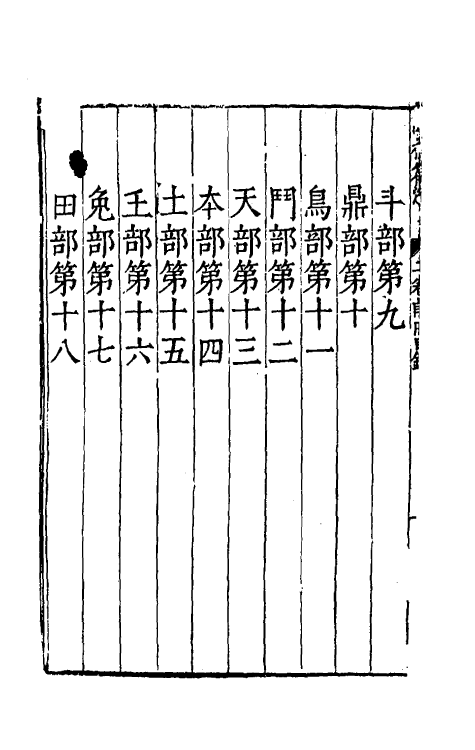 斗部第九
鼎部第十
鳥部第十一
鬥部第十二
天部第十三
本部第十四
土部第十五
王部第十六
兔部第十七
田部第十八